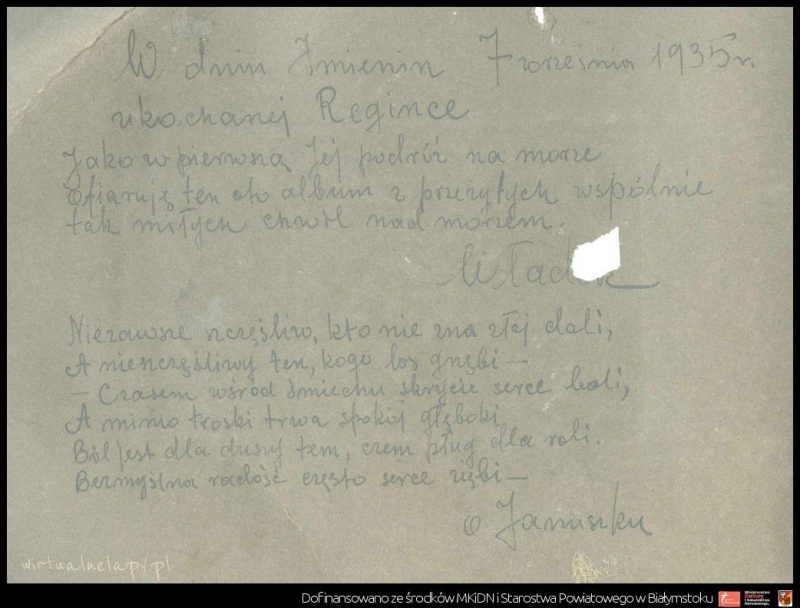 W dniu Imienin 7 września 1935 r.
ukochanej Regince
Jako w pierwszą Jej podróż na morze
ofiaruję ten oto album z przeżytych wspólnie
tak miłych chwil nad morzem.
Niezawsze szczęśliw, kto nie zna złej doli,
A nieszczęśliwy ten, kogo los gnębi —
— Czasem wśród śmiechu skrycie serce boli,
A mimo troski trwa spokój głęboki,
Ból jest dla duszy tem, czem pług dla roli.
Bezmyślna radość często serce ziębi —
o Januszku
wirtualnelapy.pl
Dofinansowano ze środków MKiDN i Starostwa Powiatowego w Białymstoku